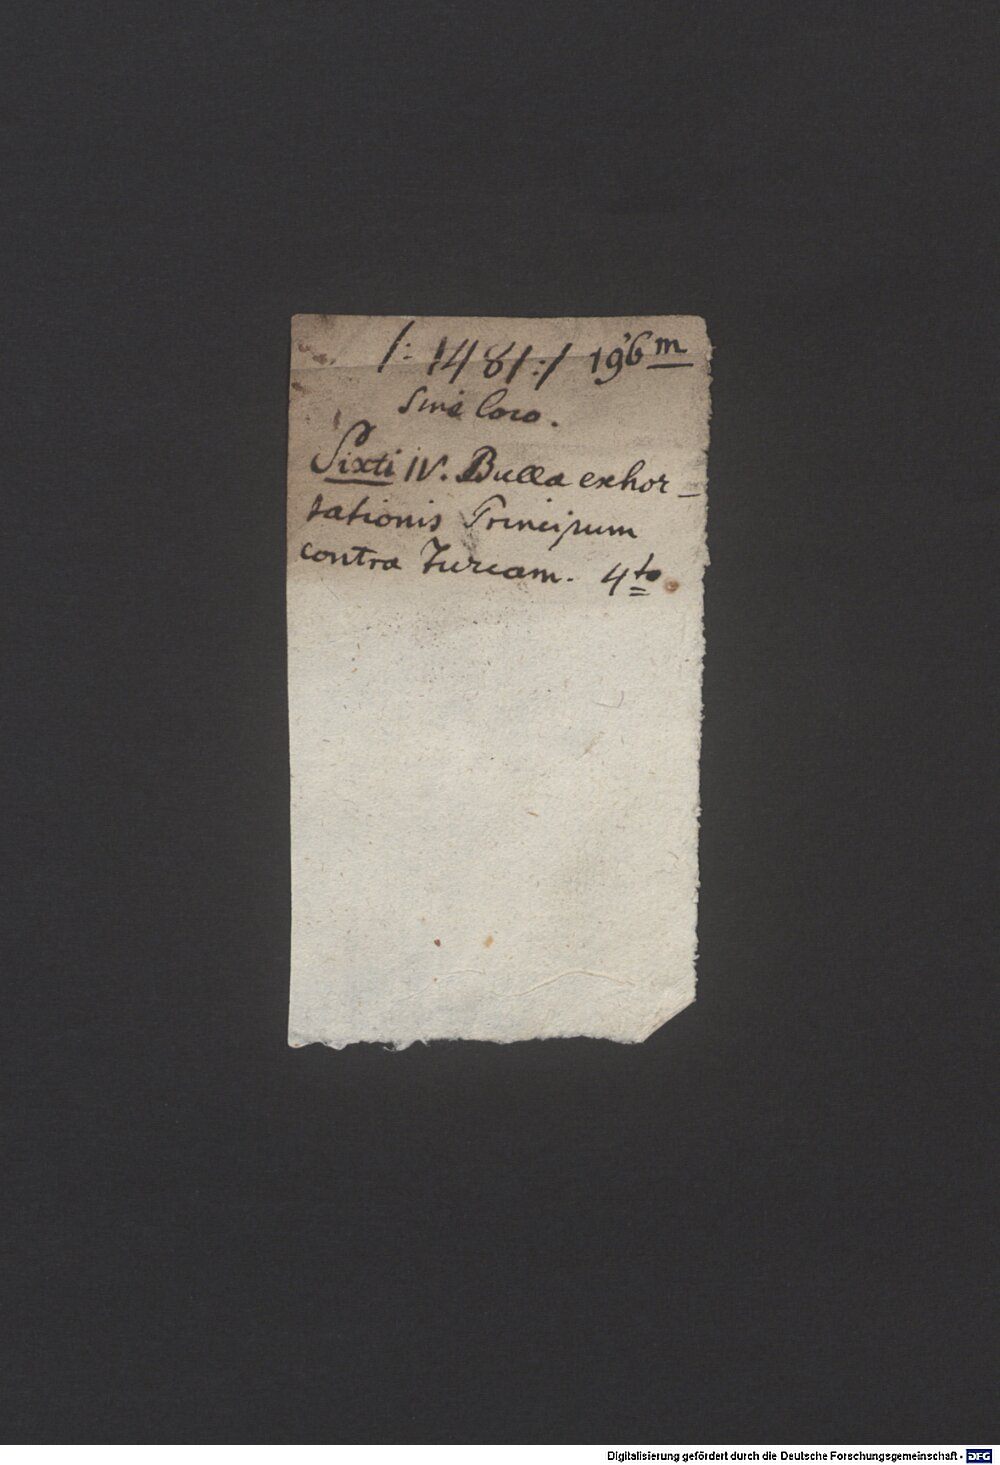 /: 1481 :/ 196m
Sine loco.
Sixti IV. Bulla exhor-
tationis Principum
contra Turcam. 4to
Digitalisierung gefördert durch die Deutsche Forschungsgemeinschaft - DFG